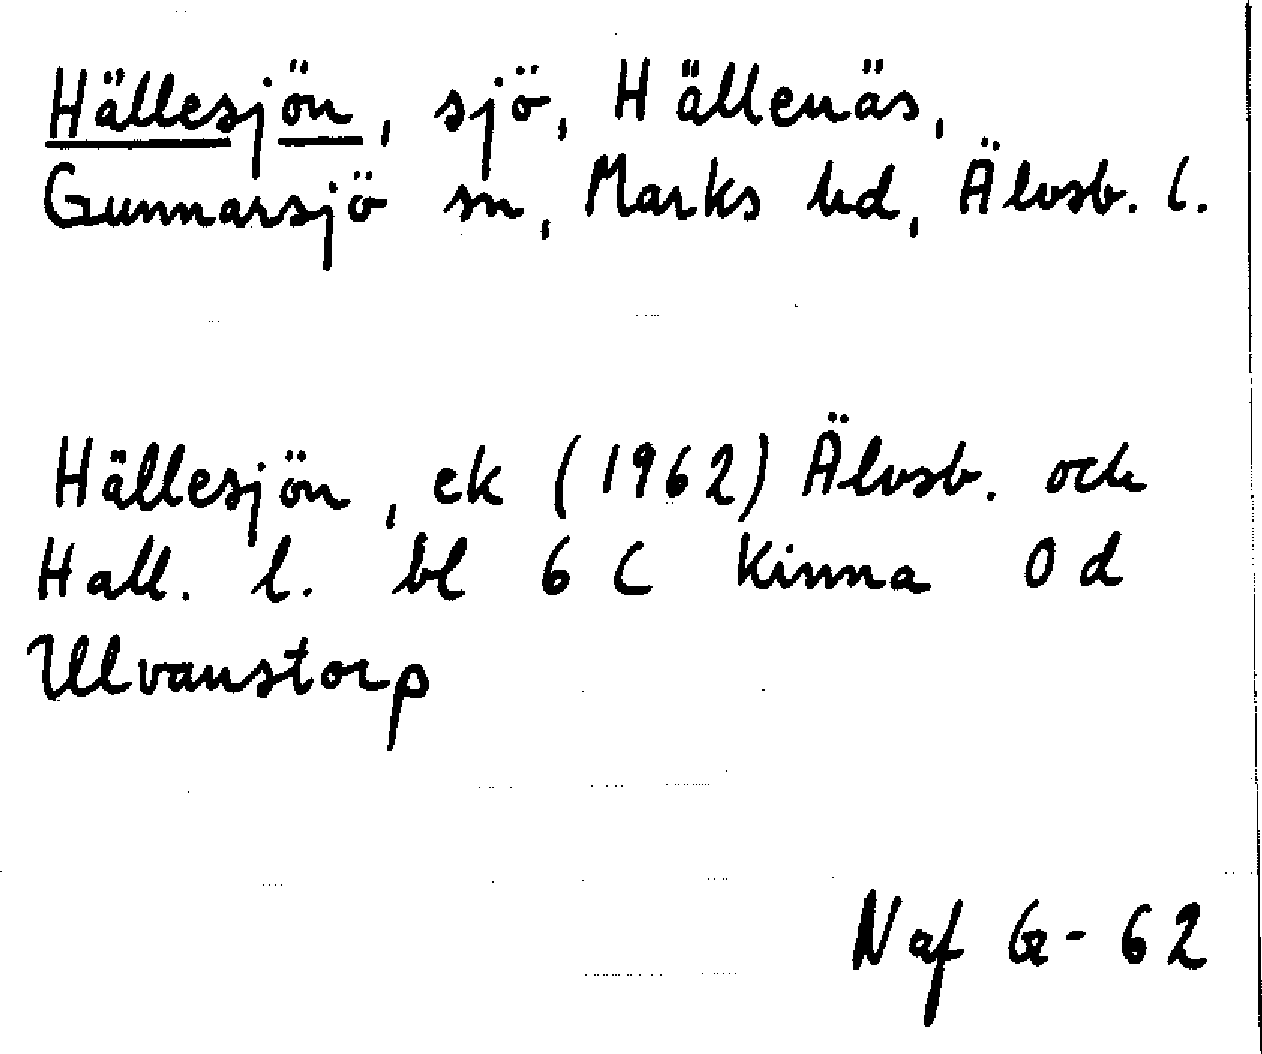 Hällesjön, sjö, Hällenäs,
Gunnarsjö sn, Marks hd, Älvsb. l.
Hällesjön, ek (1962) Älvsb. och
Hall. l. bl 6 C Kinna 0 d
Ulvanstorp
N af G-62